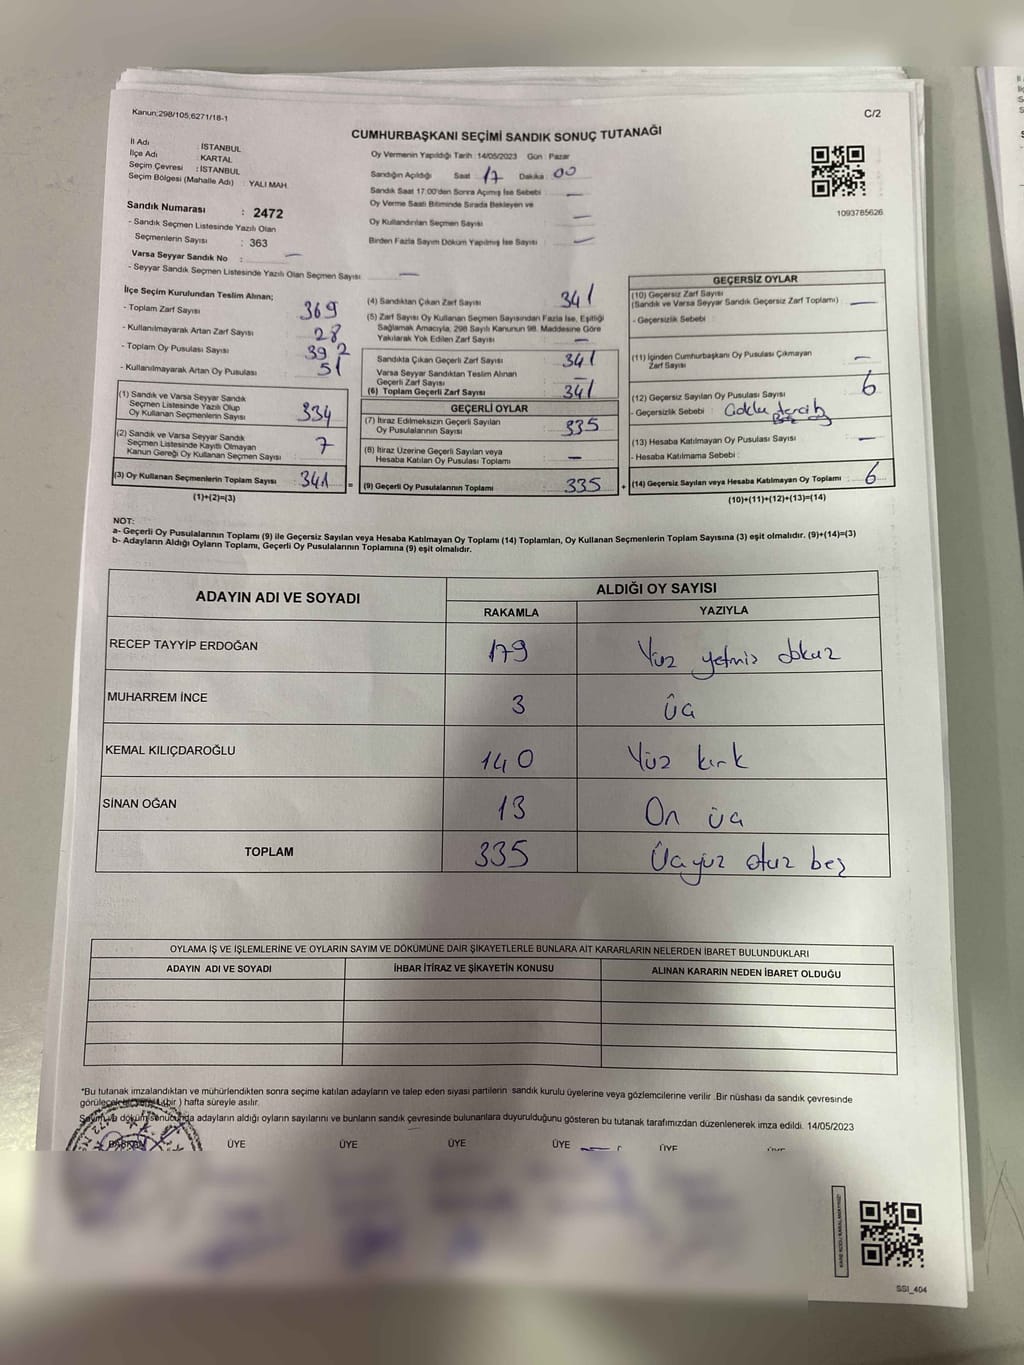 Kanun;298/105,6271/18-1
C/2
CUMHURBAŞKANI SEÇİMİ SANDIK SONUÇ TUTANAĞI
İl Adı : İSTANBUL
İlçe Adı : KARTAL
Seçim Çevresi : İSTANBUL
Seçim Bölgesi (Mahalle Adı) : YALI MAH.
Oy Vermenin Yapıldığı Tarih :14/05/2023 Gün : Pazar
Sandığın Açıldığı Saat 17 Dakika 00
Sandık Saat 17:00'den Sonra Açılmış İse Sebebi : —
Oy Verme Saati Bitiminde Sırada Bekleyen ve
Oy Kullandırılan Seçmen Sayısı : —
Birden Fazla Sayım Döküm Yapılmış İse Sayısı : —
1093785626
Sandık Numarası : 2472
- Sandık Seçmen Listesinde Yazılı Olan
Seçmenlerin Sayısı : 363
Varsa Seyyar Sandık No : —
- Seyyar Sandık Seçmen Listesinde Yazılı Olan Seçmen Sayısı : —
İlçe Seçim Kurulundan Teslim Alınan;
- Toplam Zarf Sayısı : 369
- Kullanılmayarak Artan Zarf Sayısı : 28
- Toplam Oy Pusulası Sayısı : 392
- Kullanılmayarak Artan Oy Pusulası : 51
(1) Sandık ve Varsa Seyyar Sandık
Seçmen Listesinde Yazılı Olup
Oy Kullanan Seçmenlerin Sayısı : 334
(2) Sandık ve Varsa Seyyar Sandık
Seçmen Listesinde Kayıtlı Olmayan
Kanun Gereği Oy Kullanan Seçmen Sayısı : 7
(3) Oy Kullanan Seçmenlerin Toplam Sayısı : 341 =
(1)+(2)=(3)
(4) Sandıktan Çıkan Zarf Sayısı : 341
(5) Zarf Sayısı Oy Kullanan Seçmen Sayısından Fazla İse, Eşitliği
Sağlamak Amacıyla, 298 Sayılı Kanunun 98. Maddesine Göre
Yakılarak Yok Edilen Zarf Sayısı : —
Sandıkta Çıkan Geçerli Zarf Sayısı : 341
Varsa Seyyar Sandıktan Teslim Alınan
Geçerli Zarf Sayısı : —
(6) Toplam Geçerli Zarf Sayısı : 341
GEÇERLİ OYLAR
(7) İtiraz Edilmeksizin Geçerli Sayılan
Oy Pusulalarının Sayısı : 335
(8) İtiraz Üzerine Geçerli Sayılan veya
Hesaba Katılan Oy Pusulası Toplamı : —
(9) Geçerli Oy Pusulalarının Toplamı : 335 +
GEÇERSİZ OYLAR
(10) Geçersiz Zarf Sayısı
(Sandık ve Varsa Seyyar Sandık Geçersiz Zarf Toplamı) : —
- Geçersizlik Sebebi :
(11) İçinden Cumhurbaşkanı Oy Pusulası Çıkmayan
Zarf Sayısı : —
(12) Geçersiz Sayılan Oy Pusulası Sayısı : 6
- Geçersizlik Sebebi :
(13) Hesaba Katılmayan Oy Pusulası Sayısı : —
- Hesaba Katılmama Sebebi :
(14) Geçersiz Sayılan veya Hesaba Katılmayan Oy Toplamı : 6
(10)+(11)+(12)+(13)=(14)
NOT:
a- Geçerli Oy Pusulalarının Toplamı (9) ile Geçersiz Sayılan veya Hesaba Katılmayan Oy Toplamı (14) Toplamları, Oy Kullanan Seçmenlerin Toplam Sayısına (3) eşit olmalıdır. (9)+(14)=(3)
b- Adayların Aldığı Oyların Toplamı, Geçerli Oy Pusulalarının Toplamına (9) eşit olmalıdır.
ADAYIN ADI VE SOYADI
ALDIĞI OY SAYISI
RAKAMLA YAZIYLA
RECEP TAYYİP ERDOĞAN 179 Yüz yetmiş dokuz
MUHARREM İNCE 3 üç
KEMAL KILIÇDAROĞLU 140 Yüz kırk
SİNAN OĞAN 13 On üç
TOPLAM 335 Üçyüz otuz beş
OYLAMA İŞ VE İŞLEMLERİNE VE OYLARIN SAYIM VE DÖKÜMÜNE DAİR ŞİKAYETLERLE BUNLARA AİT KARARLARIN NELERDEN İBARET BULUNDUKLARI
ADAYIN ADI VE SOYADI İHBAR İTİRAZ VE ŞİKAYETİN KONUSU ALINAN KARARIN NEDEN İBARET OLDUĞU
*Bu tutanak imzalandıktan ve mühürlendikten sonra seçime katılan adayların ve talep eden siyasi partilerin sandık kurulu üyelerine veya gözlemcilerine verilir .Bir nüshası da sandık çevresinde
görülecek bir yere 1 (bir ) hafta süreyle asılır.
Sayım ve döküm sonucunda adayların aldığı oyların sayılarını ve bunların sandık çevresinde bulunanlara duyurulduğunu gösteren bu tutanak tarafımızdan düzenlenerek imza edildi. 14/05/2023
BAŞKAN ÜYE ÜYE ÜYE ÜYE ÜYE
SSI_404